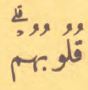 قُلُوبُهُمْ ۗ